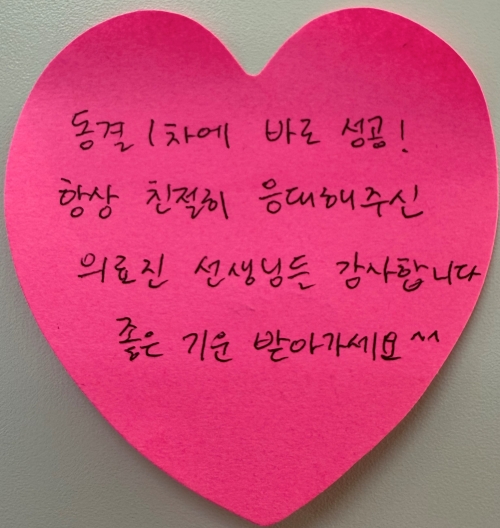 동결 1차에 바로 성공!
항상 친절히 응대해주신
의료진 선생님들 감사합니다
좋은 기운 받아가세요^^